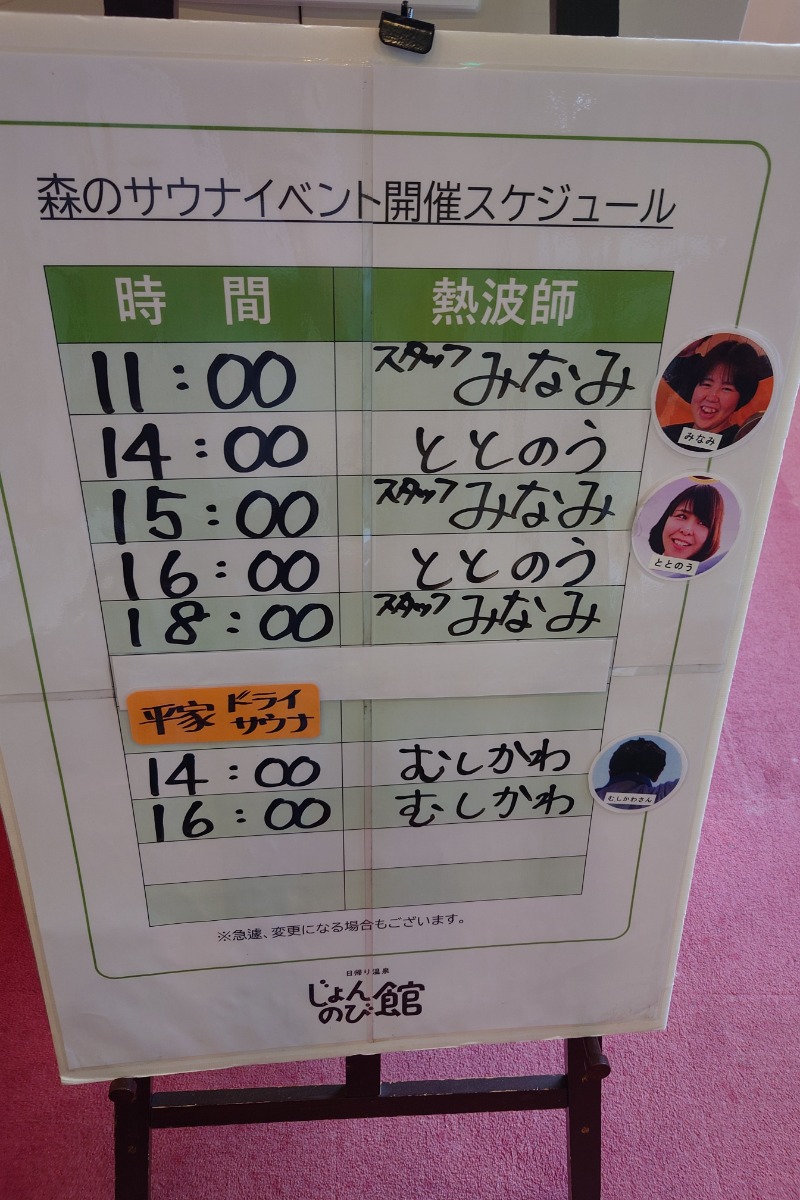 森のサウナイベント開催スケジュール
時間 熱波師
11:00 スタッフ みなみ
みなみ
14:00 ととのう
15:00 スタッフ みなみ
ととのう
16:00 ととのう
18:00 スタッフ みなみ
平家 ドライサウナ
14:00 むしかわ
むしかわさん
16:00 むしかわ
※急遽、変更になる場合もございます。
日帰り温泉
じょんのび館